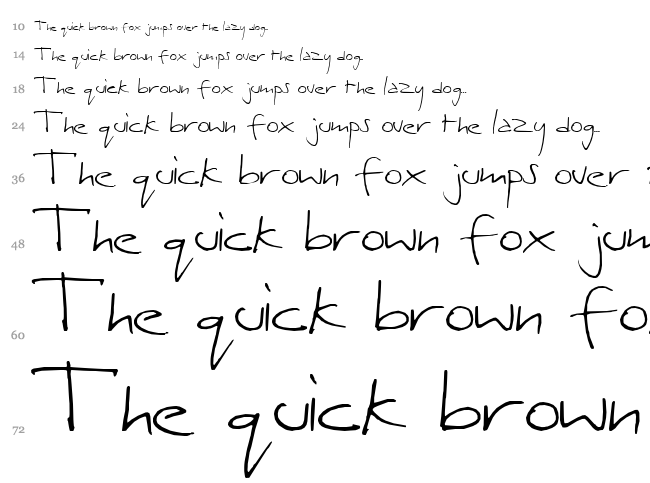 10 The quick brown fox jumps over the lazy dog.
14 The quick brown fox jumps over the lazy dog.
18 The quick brown fox jumps over the lazy dog.
24 The quick brown fox jumps over the lazy dog.
36 The quick brown fox jumps over
48 The quick brown fox jum
60 The quick brown fo
72 The quick brown